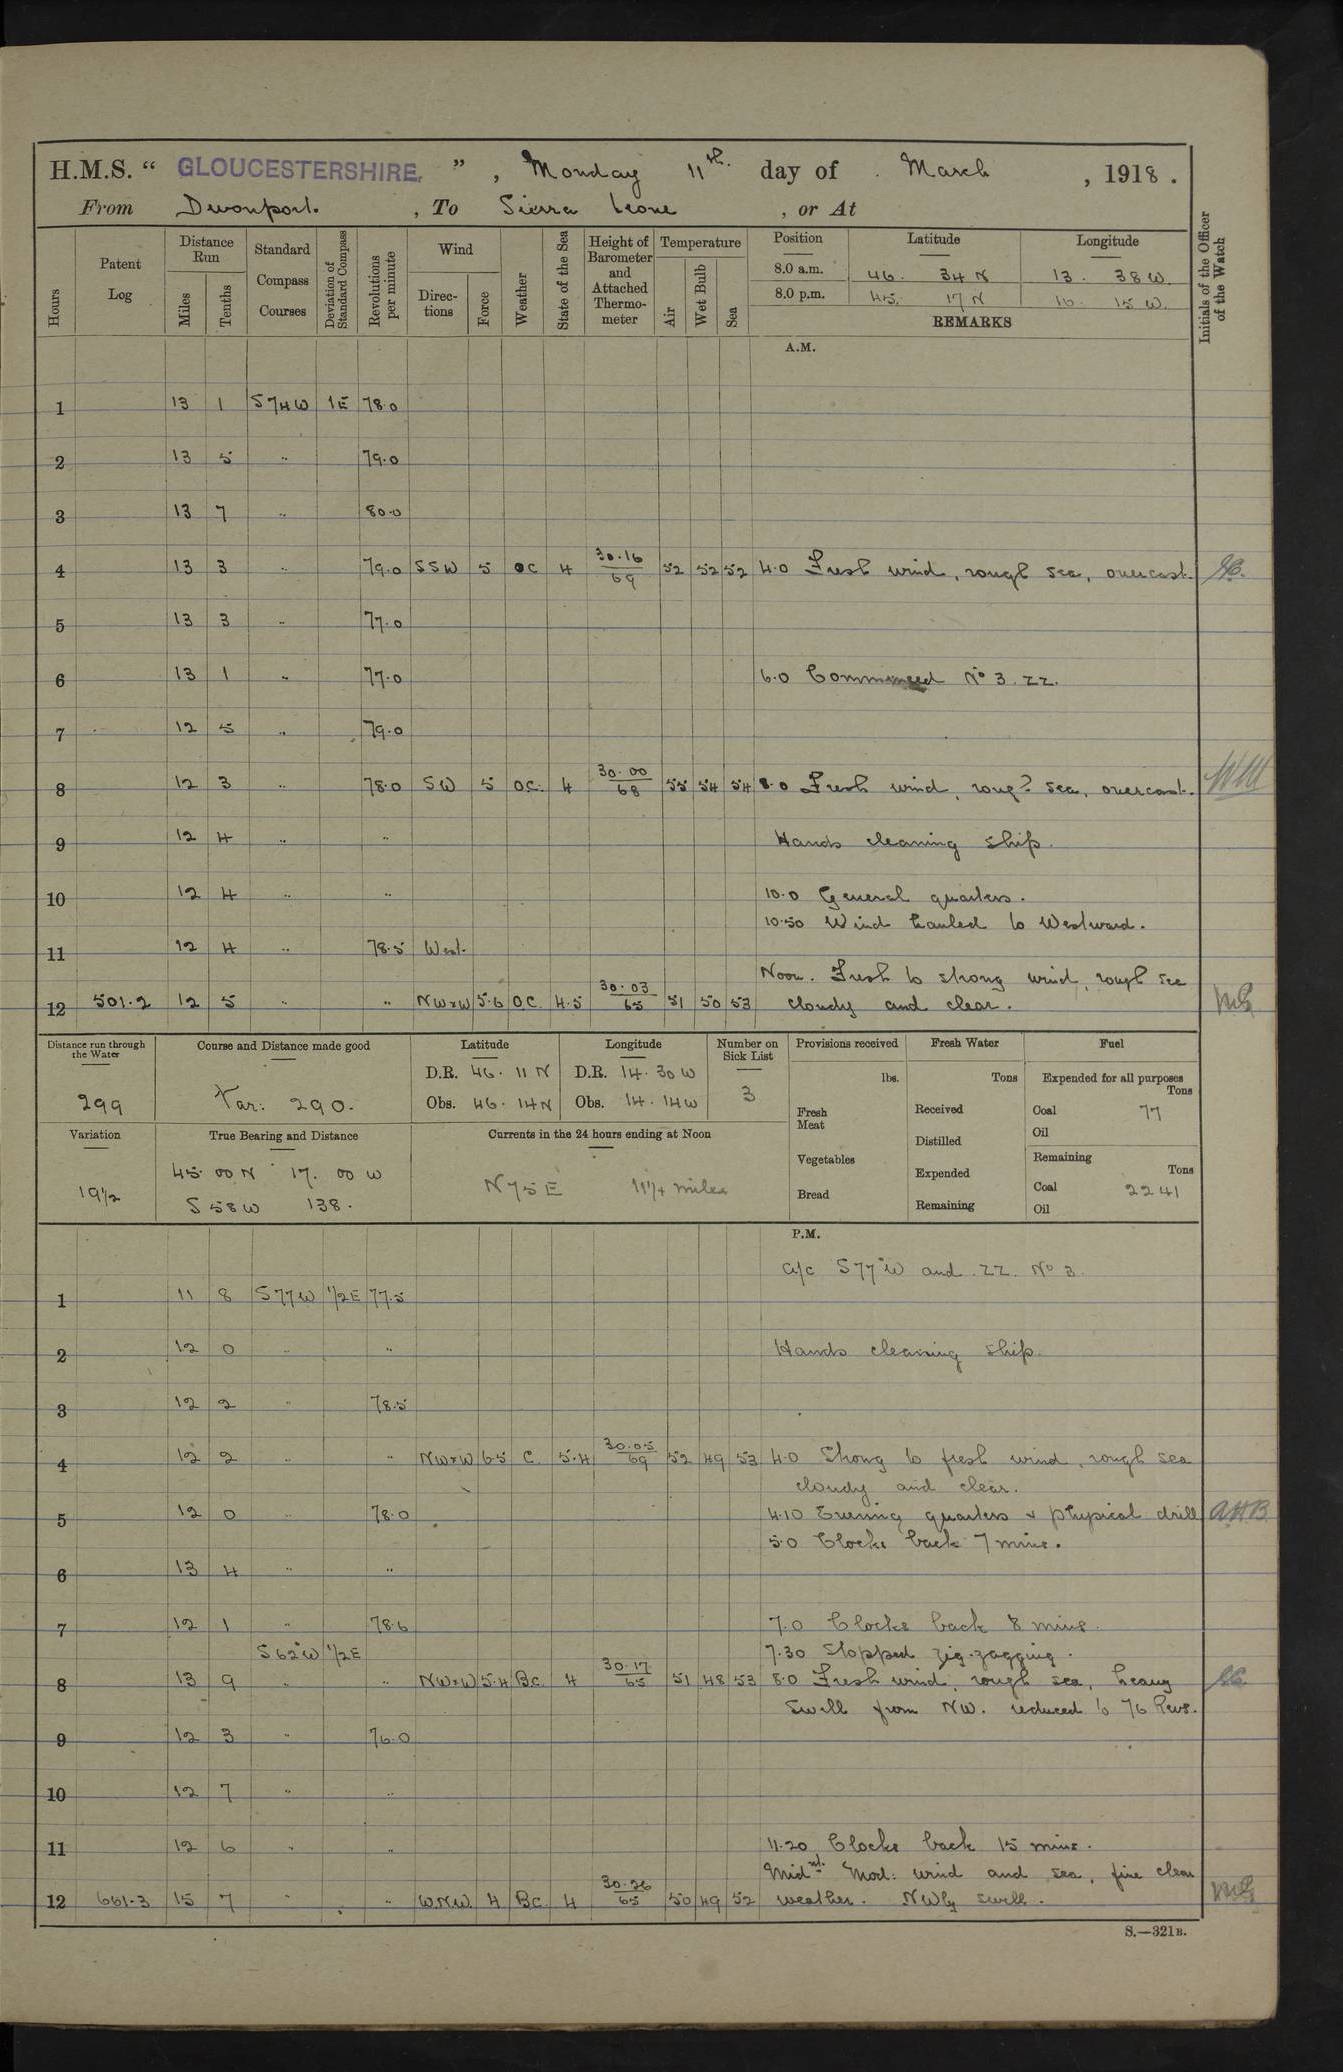 H.M.S. “ GLOUCESTERSHIRE. ” , Monday 11th. day of March , 1918 .
From Devonport. , To Sierra Leone , or At
Hours Patent Log Distance Run Miles Tenths Standard Compass Courses Deviation of Standard Compass Revolutions per minute Wind Directions Force Weather State of the Sea Height of Barometer and Attached Thermometer Temperature Air Wet Bulb Sea Position Latitude Longitude Initials of the Officer of the Watch
8.0 a.m. 46. 34 N 13. 38 W.
8.0 p.m. 45. 17 N 16. 15 W.
REMARKS
A.M.
1 13 1 S74W 1E 78.0
2 13 5 " 79.0
3 13 7 " 80.0
4 13 3 " 79.0 SSW 5 OC 4 30.16/69 52 52 52 4.0 Fresh wind, rough sea, overcast.
5 13 3 " 77.0
6 13 1 " 77.0 6.0 Commenced No 3. ZZ.
7 12 5 " 79.0
8 12 3 " 78.0 SW 5 OC. 4 30.00/68 55 54 54 8.0 Fresh wind, rough sea, overcast.
9 12 4 " " Hands cleaning ship.
10 12 4 " " 10.0 General quarters.
10.50 Wind hauled to Westward.
11 12 4 " 78.5 West.
Noon. Fresh to strong wind, rough sea
12 501.2 12 5 " " NWxW 5.6 OC. 4.5 30.03/65 51 50 53 cloudy and clear.
Distance run through the Water Course and Distance made good Latitude Longitude Number on Sick List Provisions received Fresh Water Fuel
D.R. 46. 11 N D.R. 14. 30 W lbs. Tons Expended for all purposes Tons
299 Var: 290. Obs. 46. 14N Obs. 14. 14W 3 Fresh Meat Received Coal 77
Oil
Variation True Bearing and Distance Currents in the 24 hours ending at Noon Distilled
45.00 N 17.00 W Vegetables Expended Remaining Tons
19½ S 58 W 138. N75E 11¼ miles Bread Remaining Coal 2241
Oil
P.M.
a/c S77°W and ZZ. No 3.
1 11 8 S77W ½E 77.5
2 12 0 " " Hands cleaning ship.
3 12 2 " 78.5
4 12 2 " " NWxW 6.5 C. 5.4 30.05/69 52 49 53 4.0 Strong to fresh wind, rough sea
cloudy and clear.
5 12 0 " 78.0 4.10 Evening quarters & physical drill AHB
5.0 Clocks back 7 mins.
6 13 4 " "
7 12 1 " 78.6 7.0 Clocks back 8 mins.
S62°W ½E 7.30 Stopped zig-zagging.
8 13 9 " " NWxW 5.4 BC. 4 30.17/65 51 48 53 8.0 Fresh wind, rough sea, heavy
swell from NW. reduced to 76 Revs.
9 12 3 " 76.0
10 12 7 " "
11 12 6 " " 11.20 Clocks back 15 mins.
Midnt. Mod: wind and sea, fine clear
12 661.3 15 7 " " WNW. 4 BC. 4 30.26/65 50 49 52 weather. NWly swell.
S.—321B.